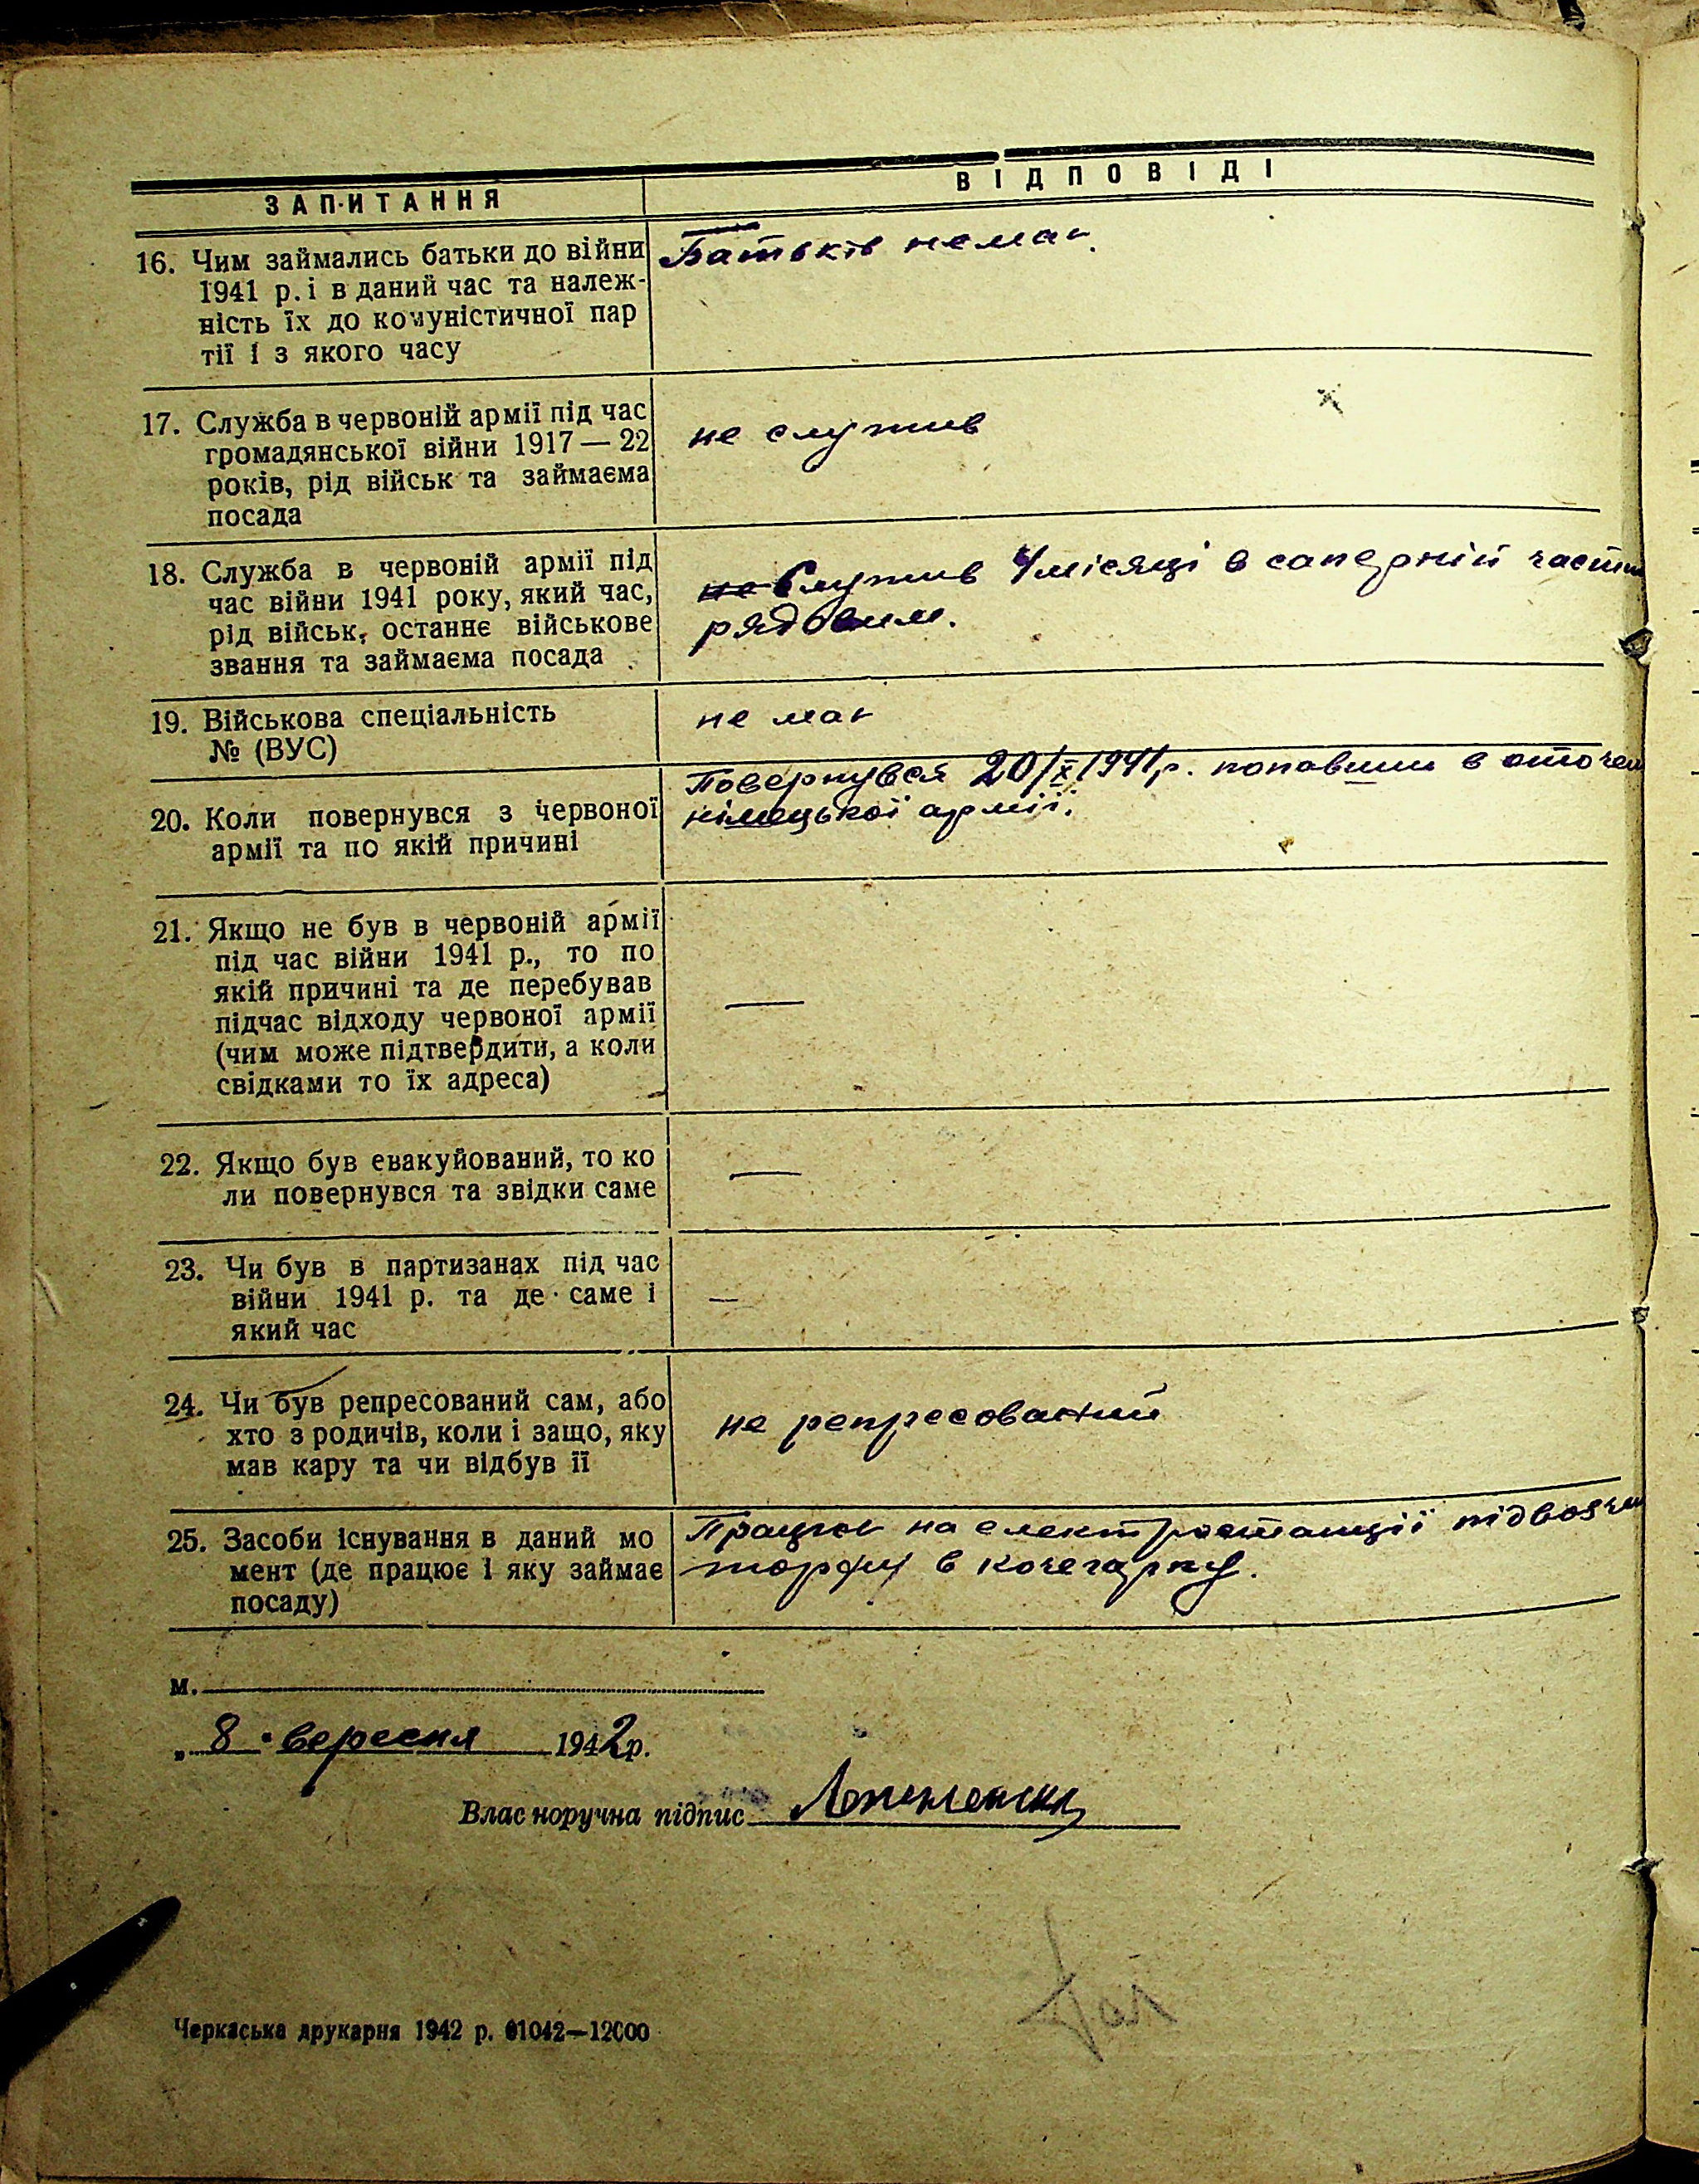 ЗАПИТАННЯ
ВІДПОВІДІ
16. Чим займались батьки до війни
1941 р. і в даний час та належ-
ність їх до комуністичної пар
тії і з якого часу
Батьків немає.
17. Служба в червоній армії під час
громадянської війни 1917 — 22
років, рід військ та займаєма
посада
не служив
18. Служба в червоній армії під
час війни 1941 року, який час,
рід військ, останнє військове
звання та займаєма посада
не Служив 4 місяці в саперній части
рядовим.
19. Військова спеціальність
№ (ВУС)
не маю
20. Коли повернувся з червоної
армії та по якій причині
Повернувся 20/X 1941 р. попавши в оточен
німецької армії.
21. Якщо не був в червоній армії
під час війни 1941 р., то по
якій причині та де перебував
підчас відходу червоної армії
(чим може підтвердити, а коли
свідками то їх адреса)
—
22. Якщо був евакуйований, то ко
ли повернувся та звідки саме
—
23. Чи був в партизанах під час
війни 1941 р. та де саме і
який час
—
24. Чи був репресований сам, або
хто з родичів, коли і защо, яку
мав кару та чи відбув її
не репресований
25. Засоби існування в даний мо
мент (де працює і яку займає
посаду)
Працюю на електростанції
торфу в кочегарку.
м.
„ 8 " вересня 1942 р.
Власноручна підпис
Черкаська друкарня 1942 р. 01042—12000